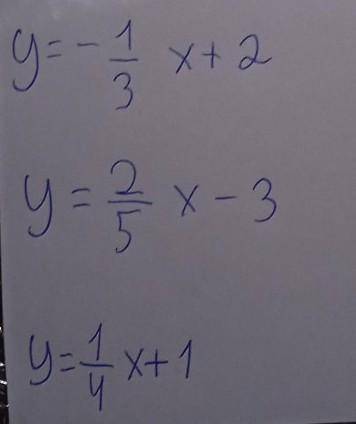 y = - 1/3 x + 2
y = 2/5 x - 3
y = 1/4 x + 1